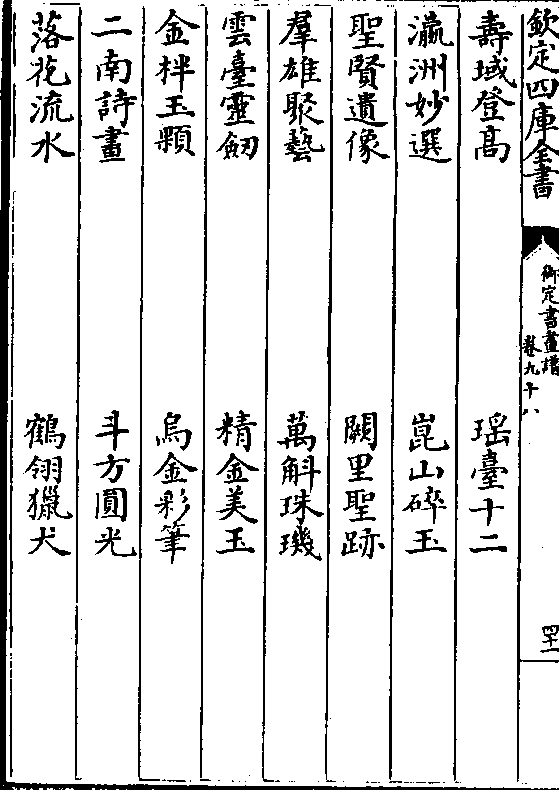 欽定四庫全書
御定書畫譜
卷九十八
四十一
壽域登高 瑶臺十二
瀛洲妙選 崑山碎玉
聖賢遺像 闕里聖跡
羣雄聚藝 萬斛珠璣
雲臺靈劒 精金美玉
金柈玉顆 烏金彩筆
二南詩畫 斗方圓光
落花流水 鶴翎獵犬